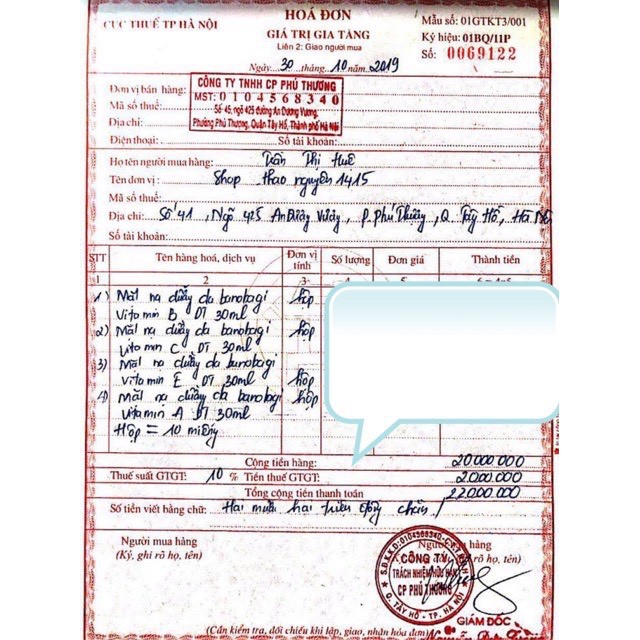 CỤC THUẾ TP HÀ NỘI
HOÁ ĐƠN
GIÁ TRỊ GIA TĂNG
Liên 2: Giao người mua
Ngày 30 tháng 10 năm 2019
Mẫu số: 01GTKT3/001
Ký hiệu: 01BQ/11P
Số: 0069122
Đơn vị bán hàng:
Mã số thuế:
Địa chỉ:
Điện thoại: Số tài khoản:
CÔNG TY TNHH CP PHÚ THƯƠNG
MST: 0104568340
Số 45, ngõ 425 đường An Dương Vương,
Phường Phú Thượng, Quận Tây Hồ, Thành phố Hà Nội
Họ tên người mua hàng: Trần Thị Huê
Tên đơn vị: Shop thao nguyên 1415
Mã số thuế:
Địa chỉ: Số 41, Ngõ 425 An Dương Vương, P. Phú Thượng, Q. Tây Hồ, Hà Nội
Số tài khoản:
STT Tên hàng hoá, dịch vụ Đơn vị tính Số lượng Đơn giá Thành tiền
1 2 3
1) Mặt nạ dưỡng da banobagi hộp
Vitamin B DT 30ml
2) Mặt nạ dưỡng da banobagi hộp
Vitamin C DT 30ml
3) Mặt nạ dưỡng da banobagi
Vitamin E DT 30ml hộp
4) Mặt nạ dưỡng da banobagi hộp
Vitamin A DT 30ml
Hộp = 10 miếng
Cộng tiền hàng: 20000000
Thuế suất GTGT: 10 % Tiền thuế GTGT: 2000000
Tổng cộng tiền thanh toán 22000000
Số tiền viết bằng chữ: Hai mươi hai triệu đồng chẵn /
Người mua hàng
(Ký, ghi rõ họ, tên)
Người bán hàng
rõ họ, tên)
S.Đ.K.D:0104568340-C.T.T.N.H.H
CÔNG TY
TRÁCH NHIỆM HỮU HẠN
CP PHÚ THƯƠNG
Q. TÂY HỒ - TP. HÀ NỘI
GIÁM ĐỐC
(Cần kiểm tra, đối chiếu khi lập, giao, nhận hóa đơn)